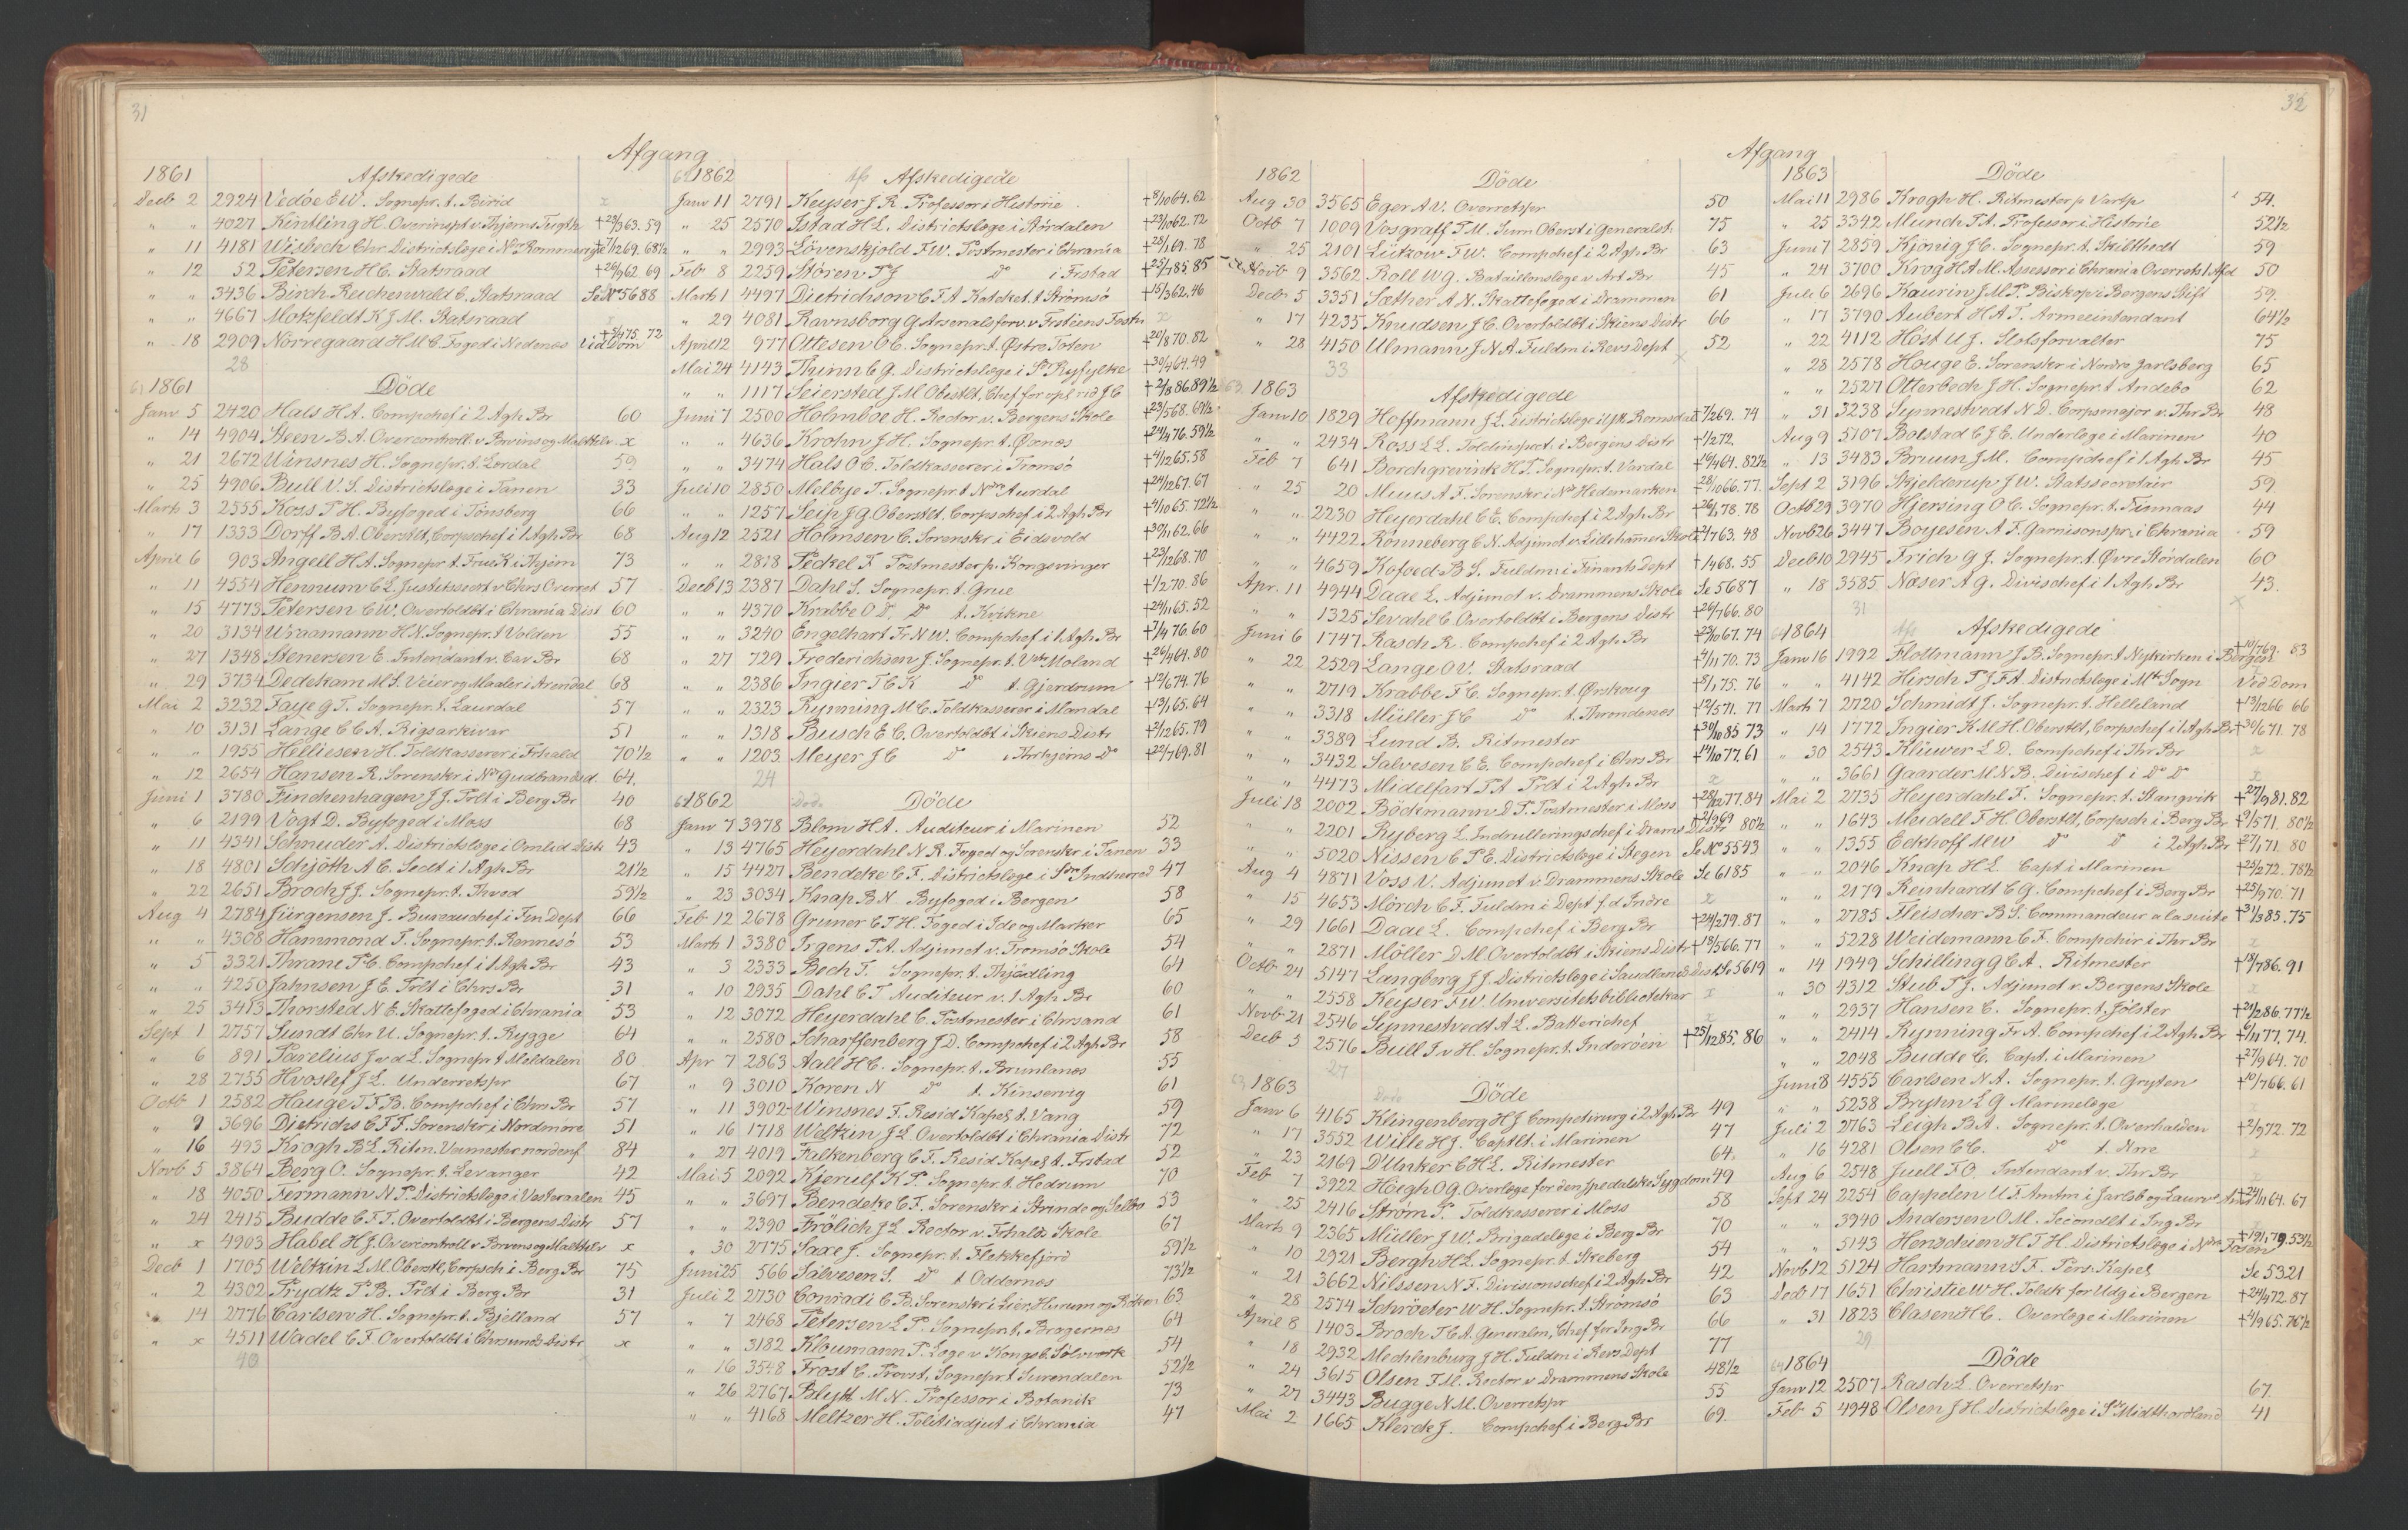 31
Afgang
1861 Afskedigede
Decb 2 2924 Vedöe E W. Sognepr. t. Birid x
" " 4027 Kintling H. Overinspt v. Thjems Tugth +29/3 63. 59
" 11 4181 Wisbech Chr. Districtslæge i Nrd Rommerige +7/12 69. 68½
" 12 52 Petersen H C. Statsraad +26/9 62. 69
" " 3436 Birch Reichenwald C. Statsraad Se No 5688
" " 4667 Motzfeldt K J M. Statsraad x
" 18 2909 Nörregaard H M C. Foged i Nedenes Ved Dom +5/4 75. 72
28
61 1861 Döde
Janv 5 2420 Hals H A. Compchef i 2 Agh Br 60
" 14 4904 Steen B A. Overcontroll. v Brvins og Malttilv. x
" 21 2672 Winsnes H. Sognepr. t. Lördal 59
" 25 4906 Bull V. S. Districtslæge i Tanen 33
Marts 3 2555 Ross T H. Byfoged i Tönsberg 66
" 17 1333 Dorff B A. Oberstlt, Corpschef i 1 Agh Br 68
April 6 903 Angell H A. Sognepr t. Frue K i Thjem 73
" 11 4554 Hennum C L. Justitssect v Chrs Overret 57
" 15 4773 Petersen C W. Overtoldbt i Chrania Dist 60
" 20 3134 Wraamann H N. Sognepr. t Volden 55
" 27 1348 Stenersen E. Intendant v. Cav Br 68
" 29 3734 Dedekam M S. Veier og Maaler i Arendal 68
Mai 2 3232 Faye G T. Sognepr. t. Laurdal 57
" 10 3131 Lange C C A. Rigsarkivar 51
" " 1955 Helliesen H. Toldkasserer i Frhald 70½
" 12 2654 Hansen R. Sorenskr i Nr Gudbrandsd. 64.
Juni 1 3780 Finckenhagen J J. Prlt i Berg Br 40
" 6 2199 Vogt D. Byfoged i Moss 68
" 11 4541 Schnuder A. Districtslæge i Omlid Distr 43
" 18 4801 Schjöth A C. Seclt i 1 Agh Br 21½
" 22 2651 Broch J J. Sognepr. t. Thved 59½
Aug 4 2784 Jürgensen J. Bureauchef i Fin Dept 66
" " 4308 Hammond T. Sognepr. t. Rennesö 53
" 5 3321 Thrane P C. Compchef i 1 Agh Br 43
" " 4250 Jahnsen J E. Prlt i Chrs Br 31
" 25 3413 Thorsted N E. Skattefoged i Chrania 53
Sept 1 2757 Sundt Chr U. Sognepr. t. Rygge 64
" 6 891 Pavelius J v d L. Sognepr t Meldalen 80
" 28 2755 Hvoslef J L. Underretspr 67
Octb 1 2582 Hauge T F B. Compchef i Chrs Br 57
" 9 3696 Dietrichs C F F. Sorenskr i Nordmöre 51
" 16 493 Krogh B L. Ritm. Vaumester nordenf 84
Novb 5 3864 Berg O. Sognepr. t. Levanger 42
" 18 4050 Fermann N P. Districtslæge i Vesteraalen 45
" 24 2415 Budde C F T. Overtoldbt i Bergens Distr 57
" x 4903 Habel H J. Overcontroll v Brvens og Maltilv x
Decb 1 1705 Weltzin L M. Oberstlt, Corpsch i Berg Br 75
" 2 4302 Prydtz P B. Prlt i Berg Br 31
" 14 2776 Carlsen H. Sognepr. t. Bjelland 57
" x 4511 Wadel C F. Overtoldbt i Chrsunds Distr x
40
62 1862 Afs Afskedigede
Janv 11 2791 Keyser J R. Professor i Historie +8/10 64. 62
" 25 2570 Istad H L. Districtslæge i Stördalen +23/10 62. 72
" " 2993 Lövenskjold F W. Postmester i Chrania +28/1 69. 78
Feb 8 2259 Stören P J Do i Frstad +25/7 85 85
Marts 1 4497 Dietrichson C F A. Katehet. t Strömsö +15/3 62. 46
" 29 4081 Ravnsborg G Arsenalsforv. v Frstéens Fæstn x
April 12 977 Ottesen O C. Sognepr. t. Østre Toten +20/8 70. 82
Mai 24 4143 Thinn C G. Districtslæge i Sr Ryfylke +30/4 64. 49
" " 1117 Seiersted J M. Obestlt, Chef for opl rid J C +2/8 86. 89½
Juni 7 2500 Holmboe H. Rector v. Bergens Skole +23/5 68. 69½
" " 4636 Krohn J H. Sognepr. t. Øxnæs +24/4 76. 59½
" " 3474 Hals O C. Toldkasserer i Tromsö +4/12 65. 58
Juli 10 2850 Melbye T. Sognepr. t Ndre Aurdal +24/12 67. 67
" " 1257 Seip J G. Oberstlt. Corpschef i 2 Agh Br +4/10 65. 72½
Aug 12 2521 Holmsen C. Sorenskr. i Eidsvold +30/1 62. 66
" " 2878 Peckel F Postmester p. Kongsvinger +23/12 68. 70
Decb 13 2387 Dahl S. Sognepr. t. Grue +1/2 70. 86
" " 4370 Krabbe O D. Do t. Kvikne +24/1 65. 52
" " 3240 Engelhart Fr N W. Compchef i 1 Agh Br +7/4 76. 60
" 27 729 Frederichsen J. Sognepr. t. Vstr Moland +26/4 64. 80
" " 2386 Ingier T C K Do t. Gjerdrum +12/6 74. 76
" " 2323 Rynning M C. Toldkasserer i Mandal +13/1 65. 64
" " 1318 Busch E C. Overtoldbt i Skiens Distr +2/12 65. 79
" " 1203 Meyer J C Do i Thrhjems Do +22/7 69. 81
24
62 1862 Döde Döde
Janv 7 3978 Blom H A. Auditeur i Marinen 52
" 13 4765 Heyerdahl N R. Foged og Sorenskr. i Tanen 33
" 15 4427 Bendeke C F. Districtslæge i Sdr Indherred 47
" 23 3034 Knap B N. Byfoged i Bergen 58
Feb 12 2678 Gruner C T H. Foged i Ide og Marker 65
Marts 1 3380 Irgens P A. Adjunct v. Tromsö Skole 54
" 3 2333 Bech T. Sognepr. t. Thjödling 64
" 10 2935 Dahl C T. Auditeur v. 1 Agh Br 60
" 12 3072 Heyerdahl C. Postmester i Chrsand 61
" " 2580 Scharffenberg J D. Compchef i 2 Agh Br 58
Apr 7 2863 Aall H C. Sognepr. t. Brunlanes 55
" 9 3010 Koren N Do t. Kinservig 61
" 11 3902 Winsnes F. Resid Kapel, t. Vang 59
" 16 1718 Weltzin J L. Overtoldbt i Chrania Distr 72
" 27 4019 Falkenberg C F. Resid Kapel t. Frstad 52
Mai 5 2092 Kjerulf K P. Sognepr. t. Hedrum 70
" " 3697 Bendeke C F. Sorenskr. i Strinde og Selbo 53
" " 2390 Frölich J L. Rector v. Frhalds Skole 67
" 30 2775 Saxe J. Sognepr. t. Flekkefjord 59½
Juni 25 566 Salvesen S. Do t Oddernes 73½
Juli 2 2730 Conradi C B. Sorenskr i Lier, Hurum og Röken 63
" 7 2468 Petersen L P. Sognepr. t. Bragernes 64
" " 3182 Kloumann P. Læge v Kongsb. Sölvværk 54
" 16 3548 Frost C. Provst, Sognepr. t Surendalen 52½
" 26 2767 Blytt M N. Professor i Botanik 73
" " 4168 Meltzer H. Politiadjut i Chrania 47
32
Afgang
1862 Döde
Aug 30 3565 Eger A V. Overretspr 50
Octb 7 1009 Vosgraff T M. Surn Oberst i Generalst. 75
" 25 2101 Lützow F W. Compchef i 2 Agh Br 63
Novb 9 3562 Roll W G. Bataillonslæge v Art Br 45
Decb 5 3351 Sæther A N. Skattefoged i Drammen 61
" 17 4235 Knudsen J C. Overtoldbt i Skiens Distr 66
" 28 4150 Ulmann J N A. Fuldm i Revs Dept 52
33
63 1863 Afskedigede
Janv 10 1829 Hoffmann J L. Districtslæge i Ystr Romsdal +7/2 69. 74
" " 2434 Ross L L. Toldinspect. i Bergens Distr +1/2 72.
Feb 7 641 Borchgrevink H P. Sognepr. t. Vardal +16/4 64. 82½
" 25 20 Muus A F. Sorenskr i Nd Hedemarken +28/10 66. 77.
" " 2230 Heyerdahl C E. Compchef i 2 Agh Br +26/1 78. 78
" " 4422 Rönneberg C N. Adjunct v. Lillehamer Skole +21/7 63. 48
" " 4659 Kofoed B S. Fuldm i Finants Dept +1/4 68. 55
Apr. 11 4944 Daae L. Adjunct v. Drammens Skole Se 5687
" " 1325 Sevahl C. Overtoldbt i Bergens Distr +26/7 66. 80
Juni 6 1747 Rasch R. Compchef i 2 Agh Br +23/10 67. 74
" 22 2529 Lange O V. Statsraad +4/11 70. 73
" " 2719 Krabbe F C. Sognepr. t. Örskoug +8/1 75. 76
" " 3318 Müller J C Do t. Throndenes +12/5 71. 77
" " 3389 Lund B. Ritmester +30/10 85 73
" " 3432 Salvesen C E. Compchef i Chrs Br +14/10 77. 61
" " 4473 Midelfart P A Prlt i 2 Agh Br x
Juli 18 2002 Bödtmann D P. Postmester i Moss +28/12 77. 84
" " 2201 Ryberg L. Indrulleringschef i Drams Distr +2/9 69 80½
" " 5020 Nissen C P E. Districtslæge i Stegen Se No 5543
Aug 4 4871 Voss V. Adjunct v. Drammens Skole Se 6185
" 15 4653 Mörch C F. Fuldm i Dept f. d Indre x
" 29 1661 Daae L. Compchef i Berg Br +24/2 79. 87
" " 2871 Möller D M. Overtoldbt i Skiens Distr +18/5 66. 77
Octb 24 5147 Langberg J J. Districtslæge i Saudlands Dist Se 5619
" " 2558 Keyser F W. Universitetsbibliotekar x
Novb 21 2546 Synnestvedt A L. Batterichef x
Decb 5 2576 Bull J v H. Sognepr. t. Inderöen +25/12 85. 86
27
63 1863 Döde Döde
Janv 6 4165 Klingenberg H J. Compchirurg i 2 Agh Br 49
" 17 3552 Wille H J. Captlt. i Marinen 47
" 23 2169 D'Unker C H L. Ritmester 64.
Feb 7 3922 Höegh O G. Overlæge for den spedalske Sygdom 49
" 25 2416 Ström P. Toldkasserer i Moss 58
Marts 9 2365 Müller J W. Brigadelæge i Berg Br 70
" 10 2921 Bergh H L. Sognepr. t. Skeberg 54
" 21 3662 Nilssen N F. Divisionschef i 2 Agh Br 42
" 28 2574 Schröeter W H. Sognepr. t. Strömsö 63
April 8 1403 Broch T C A. Generalm, Chef for Ing Br 66
" 18 2932 Mechlenburg J H. Fuldm i Revs Dept 77
" 24 3615 Olsen F M. Rector v Drammens Skole 48½
" 27 3443 Bugge N M. Overretspr 55
Mai 2 1665 Klerck J. Compchef i Berg Br 69.
1863 Döde
Mai 11 2986 Krogh H. Ritmester p Vartp 54.
" 25 3342 Munch P A. Professor i Historie 52½
Juni 7 2859 Kjönig J C. Sognepr. t. Skibthvedt 59
" 24 3700 Krog H A M. Assessor i Chrania Overrets 1 Afd 50
Juli 6 2696 Kaurin J M P. Biskop i Bergens Stift 59.
" 17 3790 Aubert H A T. Armeeintendant 64½
" 22 4112 Höst U J. Slotsforvalter 75
" 28 2578 Houge E. Sorenskr i Nordre Jarlsberg 65
" " 2527 Otterbech J H. Sognepr. t Andebo 62
" 31 3238 Synnestvedt N D. Corpsmajor v. Thr Br 48
Aug 9 5107 Bolstad C J E. Underlæge i Marinen 40
" 13 3483 Bruun J M. Compchef i 1 Agh Br 45
Sept 2 3196 Skjelderup J W. Statssecretair 59.
Octb 29 3970 Hjersing O C. Sognepr. t. Finnaas 44
Novb 26 3447 Boyesen A F. Garnisonspr. i Chrania 59
Decb 10 2945 Frich G J. Sognepr. t Øvre Stördalen 60
" 18 3585 Næser A G. Divischef i 1 Agh Br 43.
31
64 1864 Afs Afskedigede
Janv 16 1992 Flottmann J B. Sognepr. t Nykirken i Bergen +10/7 69. 83
" " 4142 Hirsch P J F A. Districtslæge i Mdt Sogn Ved Dom
Marts 7 2720 Schmidt J. Sognepr. t. Helleland +13/12 66 66
" 14 1772 Ingier K M H. Oberstlt, Corpschef i 1 Agh Br +30/6 71. 78
" 30 2543 Klüwer L D. Compchef i Thr Br x
" " 3661 Gaarder M N B. Divischef i Do Do x
Mai 2 2735 Heyerdahl F. Sognepr. t. Stangvik +27/9 81. 82
" " 1643 Meidell F H. Oberstlt, Corpsch i Berg Br +21/5 71. 80½
" " 1355 Eckhoff M W Do Do i 2 Agh Br +27/1 71. 80
" " 2046 Knap H L Capt i Marinen +25/2 72. 78½
" " 2179 Reinhardt C G. Compchef i Berg Br +25/9 70. 71
" " 2785 Fleischer B S. Commandeur a la suite +31/3 85. 75
" " 5228 Weidemann C F. Compchir i Thr Br x
" 14 1949 Schilling G C A. Ritmester +18/7 86. 91
" 30 4312 Stub P J. Adjunct v. Bergens Skole x
" " 2937 Hansen C. Sognepr. t. Jölster +24/2 86. 77½
" " 2414 Rynning Fr A. Compchef i 2 Agh Br +6/11 77. 74.
" " 2048 Budde C. Capt. i Marinen +27/9 64. 70
Juni 8 4555 Carlsen N A. Sognepr. t. Gryten +10/7 66. 61
" " 5238 Bryhn L G Marinelæge x
Juli 2 2763 Leigh B A. Sognepr. t. Overhalden +2/9 72. 72
" 16 4281 Olsen C C. Do t. Aure x
Aug 6 2548 Juell F O. Intendant v. Thr Br x
Sept 24 2254 Cappelen U F. Amtm i Jarlsb og Laurvs Amt +24/11 64. 67
" " 3940 Andersen O M. Secondlt i Ing Br x
" " 5143 Henschien H T H. Districtslæge i Ndre Fosen +19/1 79. 53½
Novb 12 5124 Hartmann S F. Pers. Kapel Se 5321
Decb 17 1651 Christie W H. Toldk for Udg i Bergen +24/4 72. 87
" 31 1823 Clasen H C. Overlæge i Marinen +4/9 65. 76½
29
64 1864 Döde
Janv 12 2507 Rasch L. Overretspr 67.
Feb 5 4948 Olsen J H. Districtslæge i Sr Midthordland 41